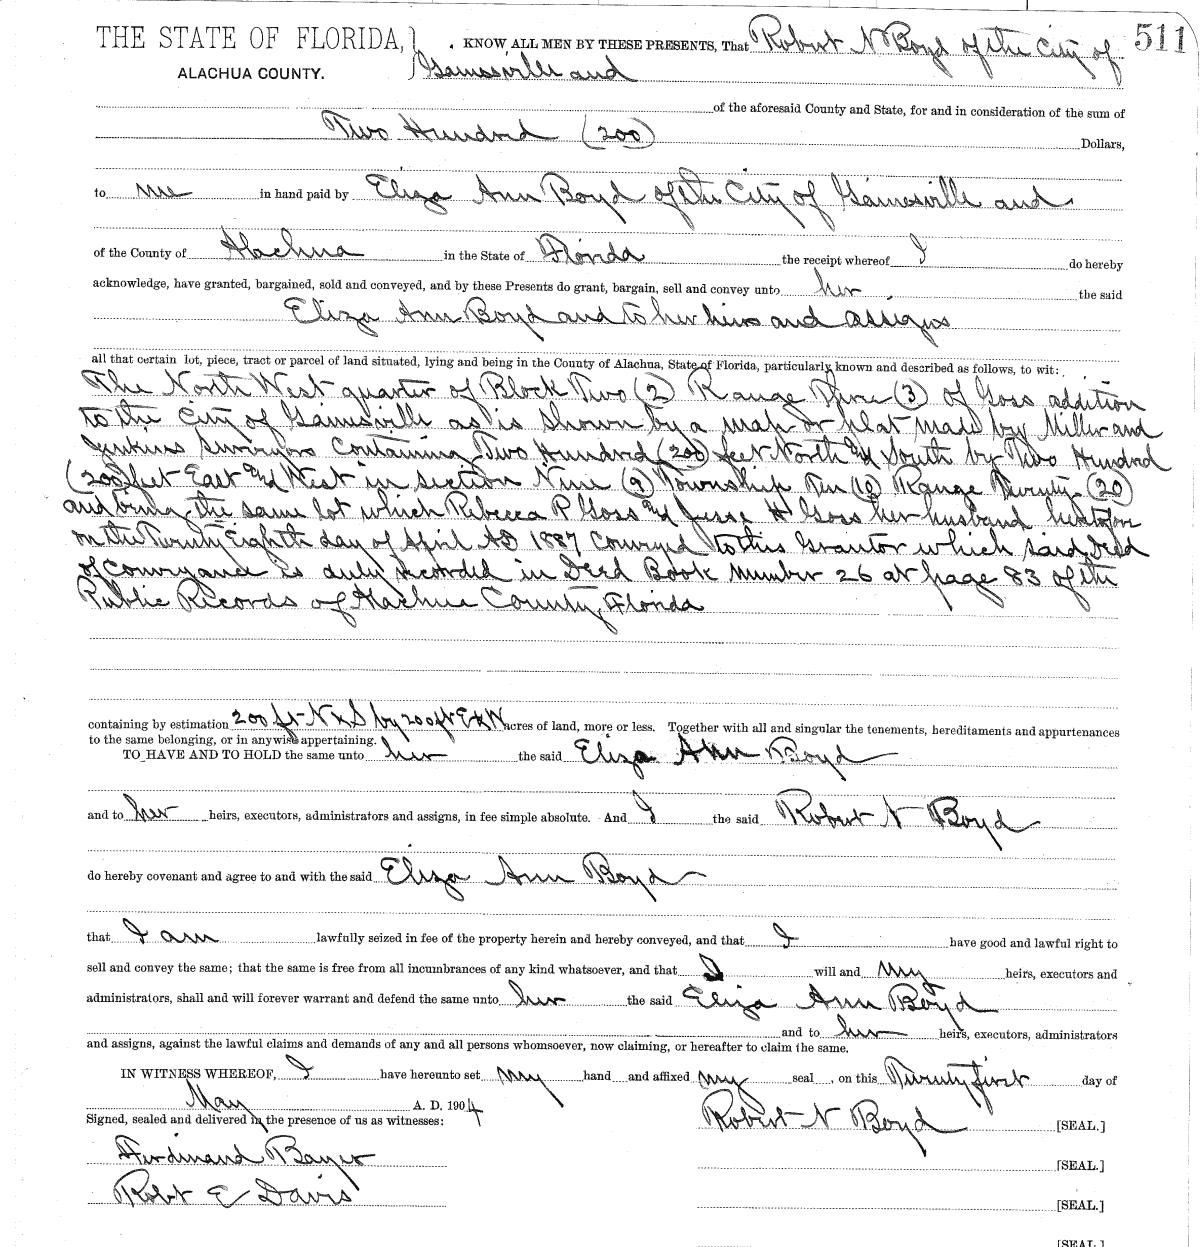 THE STATE OF FLORIDA, } KNOW ALL MEN BY THESE PRESENTS, That Robert N Boyd of the City of 511
ALACHUA COUNTY. Gainesville and
of the aforesaid County and State, for and in consideration of the sum of
Two Hundred (200) Dollars,
to me in hand paid by Eliza Ann Boyd of the City of Gainesville and
of the County of Alachua in the State of Florida the receipt whereof I do hereby
acknowledge, have granted, bargained, sold and conveyed, and by these Presents do grant, bargain, sell and convey unto her the said
Eliza Ann Boyd and to her heirs and assigns
all that certain lot, piece, tract or parcel of land situated, lying and being in the County of Alachua, State of Florida, particularly known and described as follows, to wit:
The North West quarter of Block Two (2) Range Three (3) of Goss addition
to the City of Gainsville as is shown by a map or plat made by Miller and
Jenkins Surveyors Containing Two Hundred (200) feet North and South by Two Hundred
(200) feet East and West in section Nine (9) Township Ten (10) Range Twenty (20)
and being the same lot which Rebecca P Goss and Jesse H Goss her husband heretofore
on the Twenty Eighth day of April AD 1887 Conveyed to this Grantor which said Deed
of Conveyance is duly recorded in Deed Book Number 26 at page 83 of the
Public Records of Alachua County, Florida
containing by estimation 200 ft N & S by 200 ft E & W acres of land, more or less. Together with all and singular the tenements, hereditaments and appurtenances
to the same belonging, or in anywise appertaining.
TO HAVE AND TO HOLD the same unto her the said Eliza Ann Boyd
and to her heirs, executors, administrators and assigns, in fee simple absolute. And I the said Robert N Boyd
do hereby covenant and agree to and with the said Eliza Ann Boyd
that I am lawfully seized in fee of the property herein and hereby conveyed, and that I have good and lawful right to
sell and convey the same; that the same is free from all incumbrances of any kind whatsoever, and that I will and my heirs, executors and
administrators, shall and will forever warrant and defend the same unto her the said Eliza Ann Boyd
and to her heirs, executors, administrators
and assigns, against the lawful claims and demands of any and all persons whomsoever, now claiming, or hereafter to claim the same.
IN WITNESS WHEREOF, I have hereunto set my hand and affixed my seal, on this Twenty first day of
May A. D. 1904
Signed, sealed and delivered in the presence of us as witnesses: Robert N Boyd [SEAL.]
Ferdinand Bayer [SEAL.]
Robt E Davis [SEAL.]
[SEAL.]